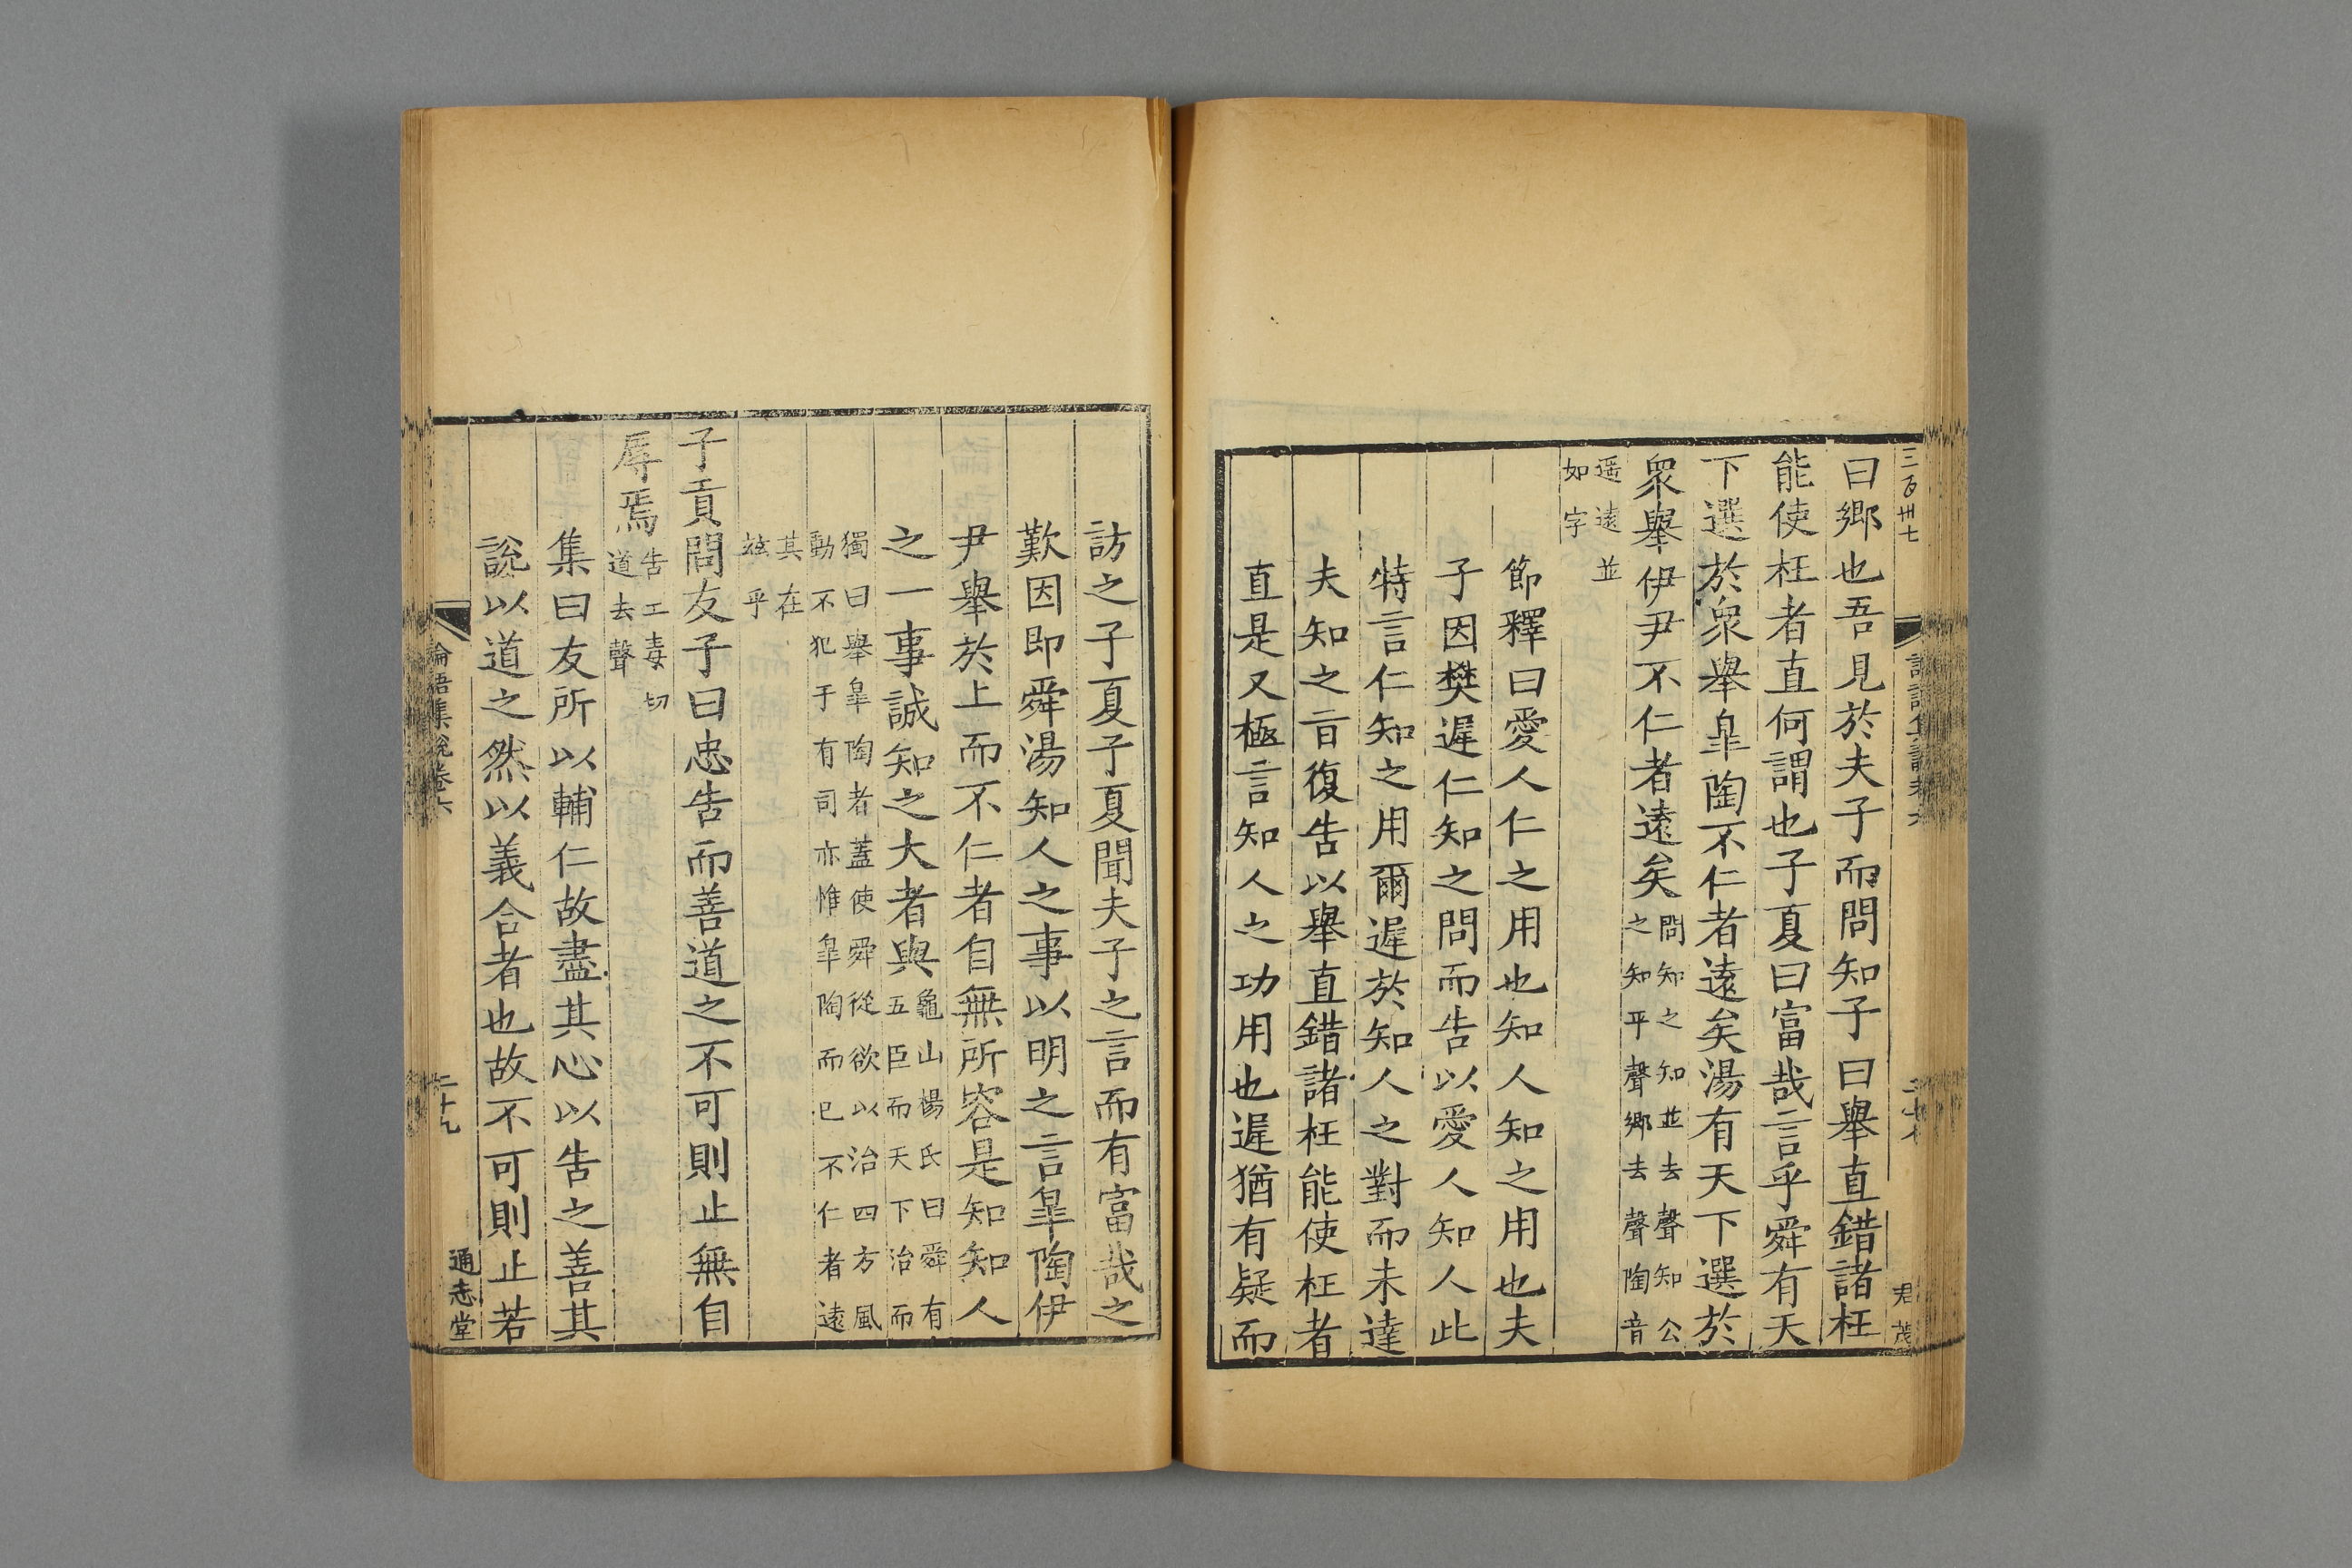 三百卅七
曰鄉也吾見於夫子而問知子曰舉直錯諸枉
能使枉者直何謂也子夏曰富哉言乎舜有天
下選於衆舉皐陶不仁者遠矣湯有天下選於
衆舉伊尹不仁者遠矣問知之知並去聲知公
之知平聲鄉去聲陶音
遥遠並
如字
節釋曰愛人仁之用也知人知之用也夫
子因樊遲仁知之問而告以愛人知人此
特言仁知之用爾遲於知人之對而未達
夫知之㫖復告以舉直錯諸枉能使枉者
直是又極言知人之功用也遲猶有疑而
君茂
訪之子夏子夏聞夫子之言而有富哉之
歎因即舜湯知人之事以明之言皐陶伊
尹舉於上而不仁者自無所容是知知人
之一事誠知之大者與龜山楊氏曰舜有
五臣而天下治而
獨曰舉皐陶者蓋使舜從欲以治四方風
動不犯于有司亦惟皐陶而已不仁者遠
其在
玆乎
子貢問友子曰忠告而善道之不可則止無自
辱焉告工毒切
道去聲
集曰友所以輔仁故盡其心以告之善其
說以道之然以義合者也故不可則止若
論語集說卷六
二十九
通志堂